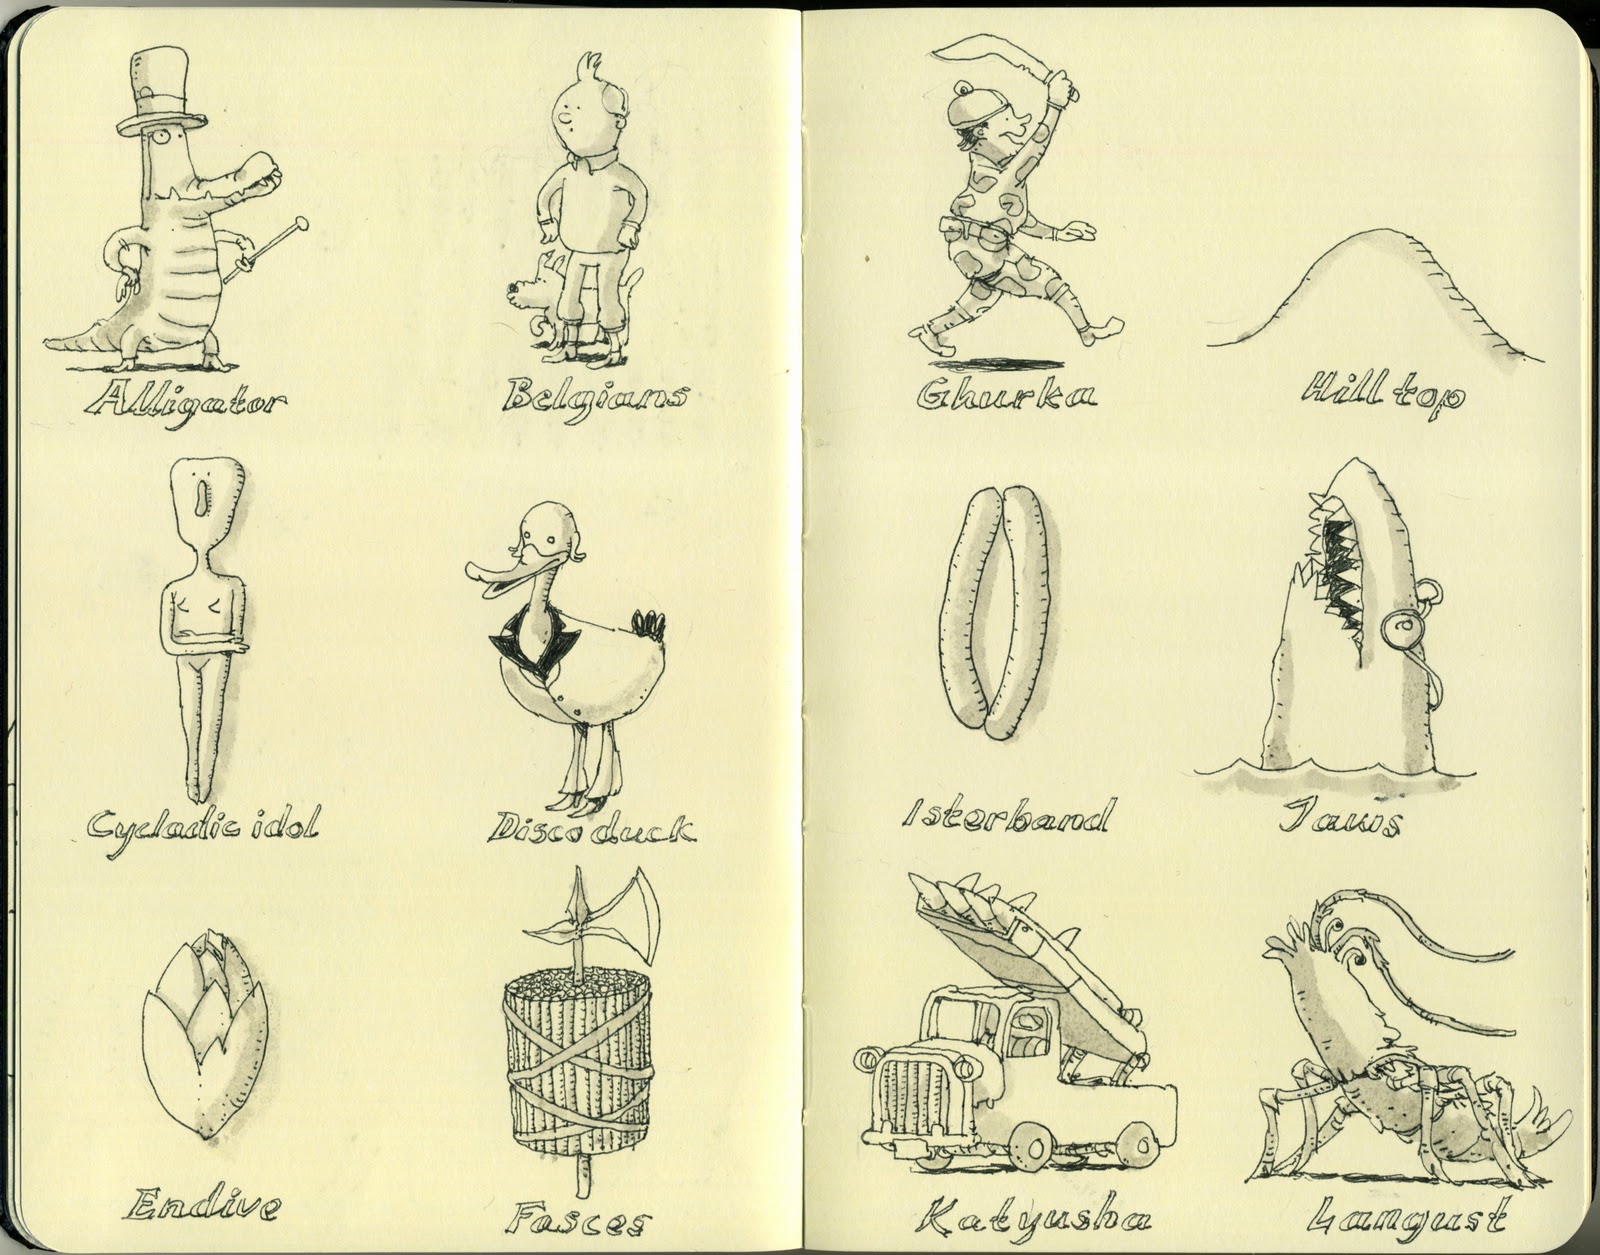 Alligator
Belgians
Cycladic idol
Disco duck
Endive
Fasces
Ghurka
Hill top
Isterband
a
Jaws
Katyusha
Langust